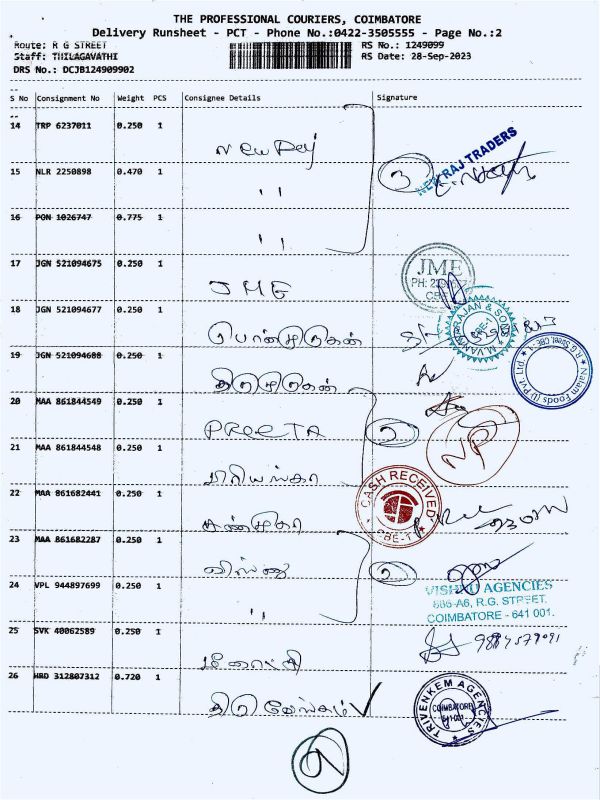 THE PROFESSIONAL COURIERS, COIMBATORE
Delivery Runsheet - PCT - Phone No.:0422-3505555 - Page No.:2
Route: R G STREET
RS No.: 1249099
Staff: THILAGAVATHI
RS Date: 28-Sep-2023
DRS No.: DCJB124909902
S No Consignment No Weight PCS Consignee Details Signature
14 TRP 6237011 0.250 1
NEW RAJ TRADERS
15 NLR 2250898 0.470 1
3
" "
16 PON 1026747 0.775 1
" "
17 JGN 521094675 0.250 1
JME
JME
CBE
18 JGN 521094677 0.250 1
பொன்முருகன்
RAJAN & SONS
CBE-1
19 JGN 521094688 0.250 1
திருமுருகன்
Nalam Foods (I) Pvt Ltd
R.G Street, CBE-1.
20 MAA 861844549 0.250 1
PREETA
2
NP
21 MAA 861844548 0.250 1
பிரியங்கா
22 MAA 861682441 0.250 1
CASH RECEIVED
CBE-1
23 MAA 861682287 0.250 1
விஸ்னு
2
24 VPL 944897699 0.250 1
" "
VISHNU AGENCIES
606-A6, R.G. STREET,
COIMBATORE - 641 001.
25 SVK 40062589 0.250 1
மீனாட்சி
26 HRD 312807312 0.720 1
திருவேங்கடம்
TRIVENKEM AGENCIES
COIMBATORE
641-001